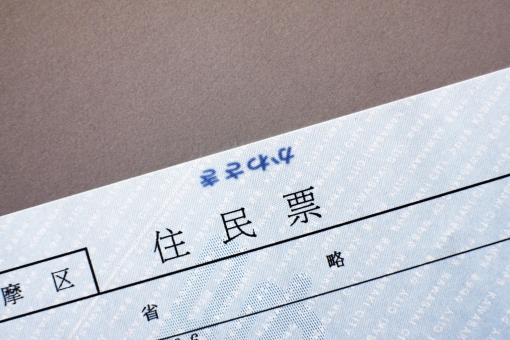 かわさき
住民票
摩区
省略